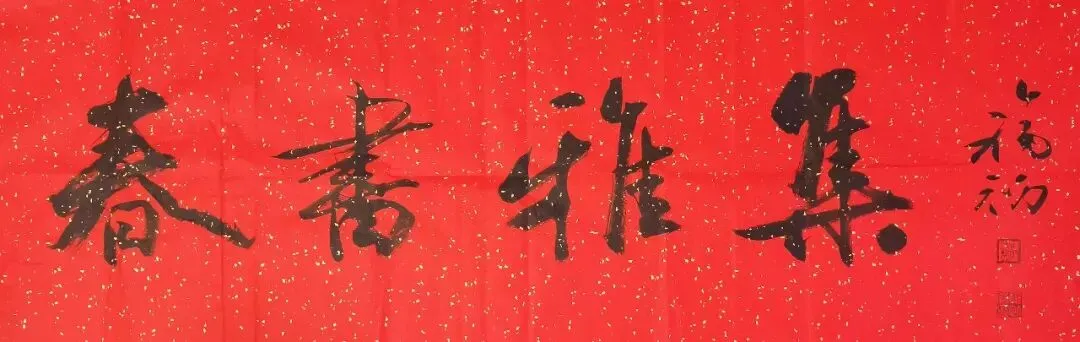 春書雅集
卜福初